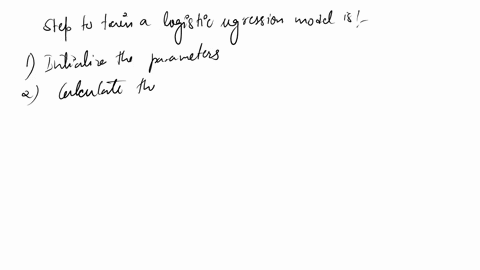 Step to train a logistic regression model is!-
1) Initialize the parameters
2) Calculate th